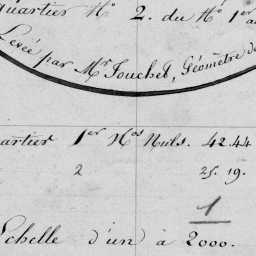 quartier N.° 2. du N.° 1.er au
Levée par M.r Touchet, Géomètre de
artier 1.er N.os Nuls. 42.44
2 25. 19.
1
Echelle d'un à 2000.